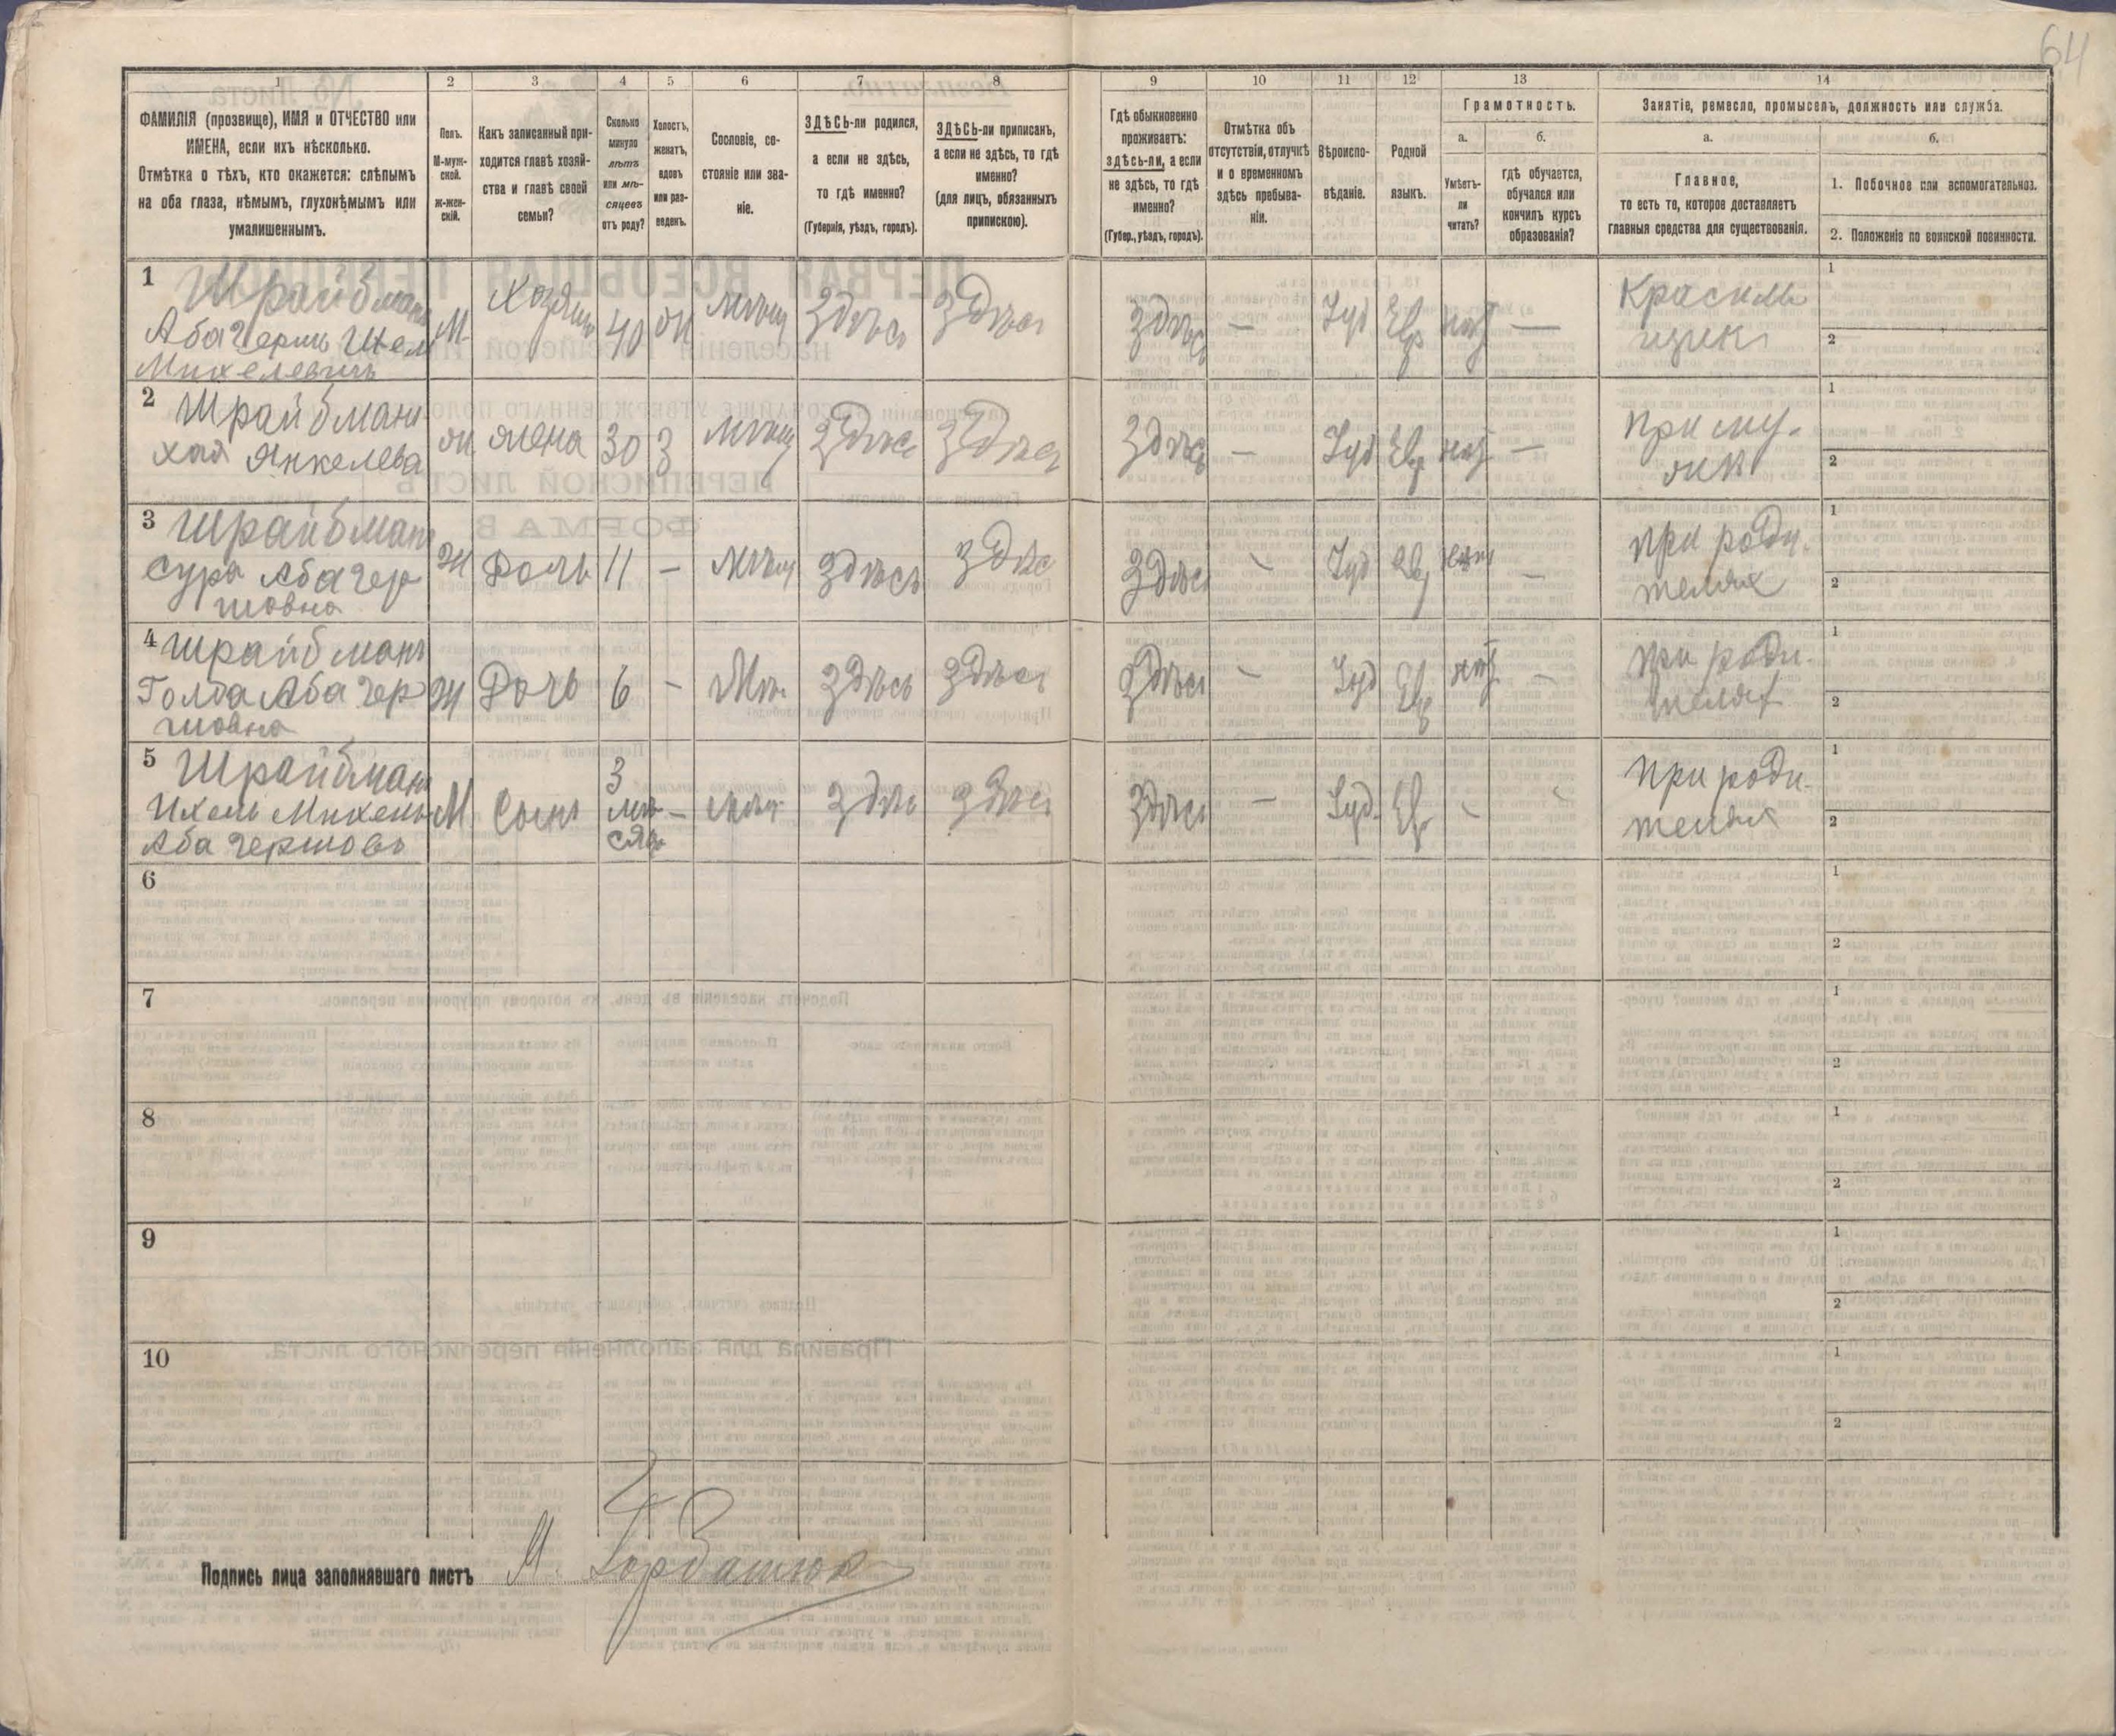 64
1
ФАМИЛІЯ (прозвище), ИМЯ и ОТЧЕСТВО или
ИМЕНА, если ихъ нѣсколько.
Отмѣтка о тѣхъ, кто окажется: слѣпымъ
на оба глаза, нѣмымъ, глухонѣмымъ или
умалишеннымъ.
2
Полъ.
М-муж-
ской.
Ж-жен-
скій.
3
Какъ записанный при-
ходится главѣ хозяй-
ства и главѣ своей
семьи?
4
Сколько
минуло
лѣтъ
или мѣ-
сяцевъ
отъ роду?
5
Холостъ,
женатъ,
вдовъ
или раз-
веденъ.
6
Сословіе, со-
стояніе или зва-
ніе.
7
ЗДѢСЬ-ли родился,
а если не здѣсь,
то гдѣ именно?
(Губернія, уѣздъ, городъ).
8
ЗДѢСЬ-ли приписанъ,
а если не здѣсь, то гдѣ
именно?
(для лицъ, обязанныхъ
припискою).
9
Гдѣ обыкновенно
проживаетъ:
здѣсь-ли, а если
не здѣсь, то гдѣ
именно?
(Губер., уѣздъ, городъ).
10
Отмѣтка объ
отсутствіи, отлучкѣ
и о временномъ
здѣсь пребыва-
ніи.
11
Вѣроиспо-
вѣданіе.
12
Родной
языкъ.
13
Грамотность.
а.
Умѣетъ-
ли
читать?
б.
гдѣ обучается,
обучался или
кончилъ курсъ
образованія?
14
Занятіе, ремесло, промыселъ, должность или служба.
а.
Главное,
то есть то, которое доставляетъ
главныя средства для существованія.
б.
1. Побочное или вспомогательное.
2. Положеніе по воинской повинности.
1
Шрайбманъ
Аба Гершъ Ихел
Михелевичъ
М
Хозяинъ
40
ж
мѣщ
Здѣсь
Здѣсь
Здѣсь
—
Іуд
Евр
—
Красиль
щикъ
1
2
2
Шрайбманъ
Хая Янкелева
ж
жена
30
З
мѣщ
Здѣсь
Здѣсь
Здѣсь
—
Іуд
Евр
—
При му-
жѣ
1
2
3
Шрайбманъ
Сура Аба Гер
шовна
Ж
Дочь
11
—
мѣщ
Здѣсь
Здѣсь
Здѣсь
—
Іуд
Евр
—
При роди-
теляхъ
1
2
4
Шрайбманъ
Голда Аба Гер
шовна
Ж
Дочь
6
—
Мѣщ
Здѣсь
Здѣсь
Здѣсь
—
Іуд
Евр
—
При роди-
теляхъ
1
2
5
Шрайбманъ
Ихель Михель
Аба Гершовъ
М
Сынъ
3
мѣ
сяц
—
мѣщ
Здѣсь
Здѣсь
Здѣсь
—
Іуд.
Ев
-
-
При роди-
теляхъ
1
2
6
1
2
7
1
2
8
1
2
9
1
2
10
1
2
Подпись лица заполнявшаго листъ